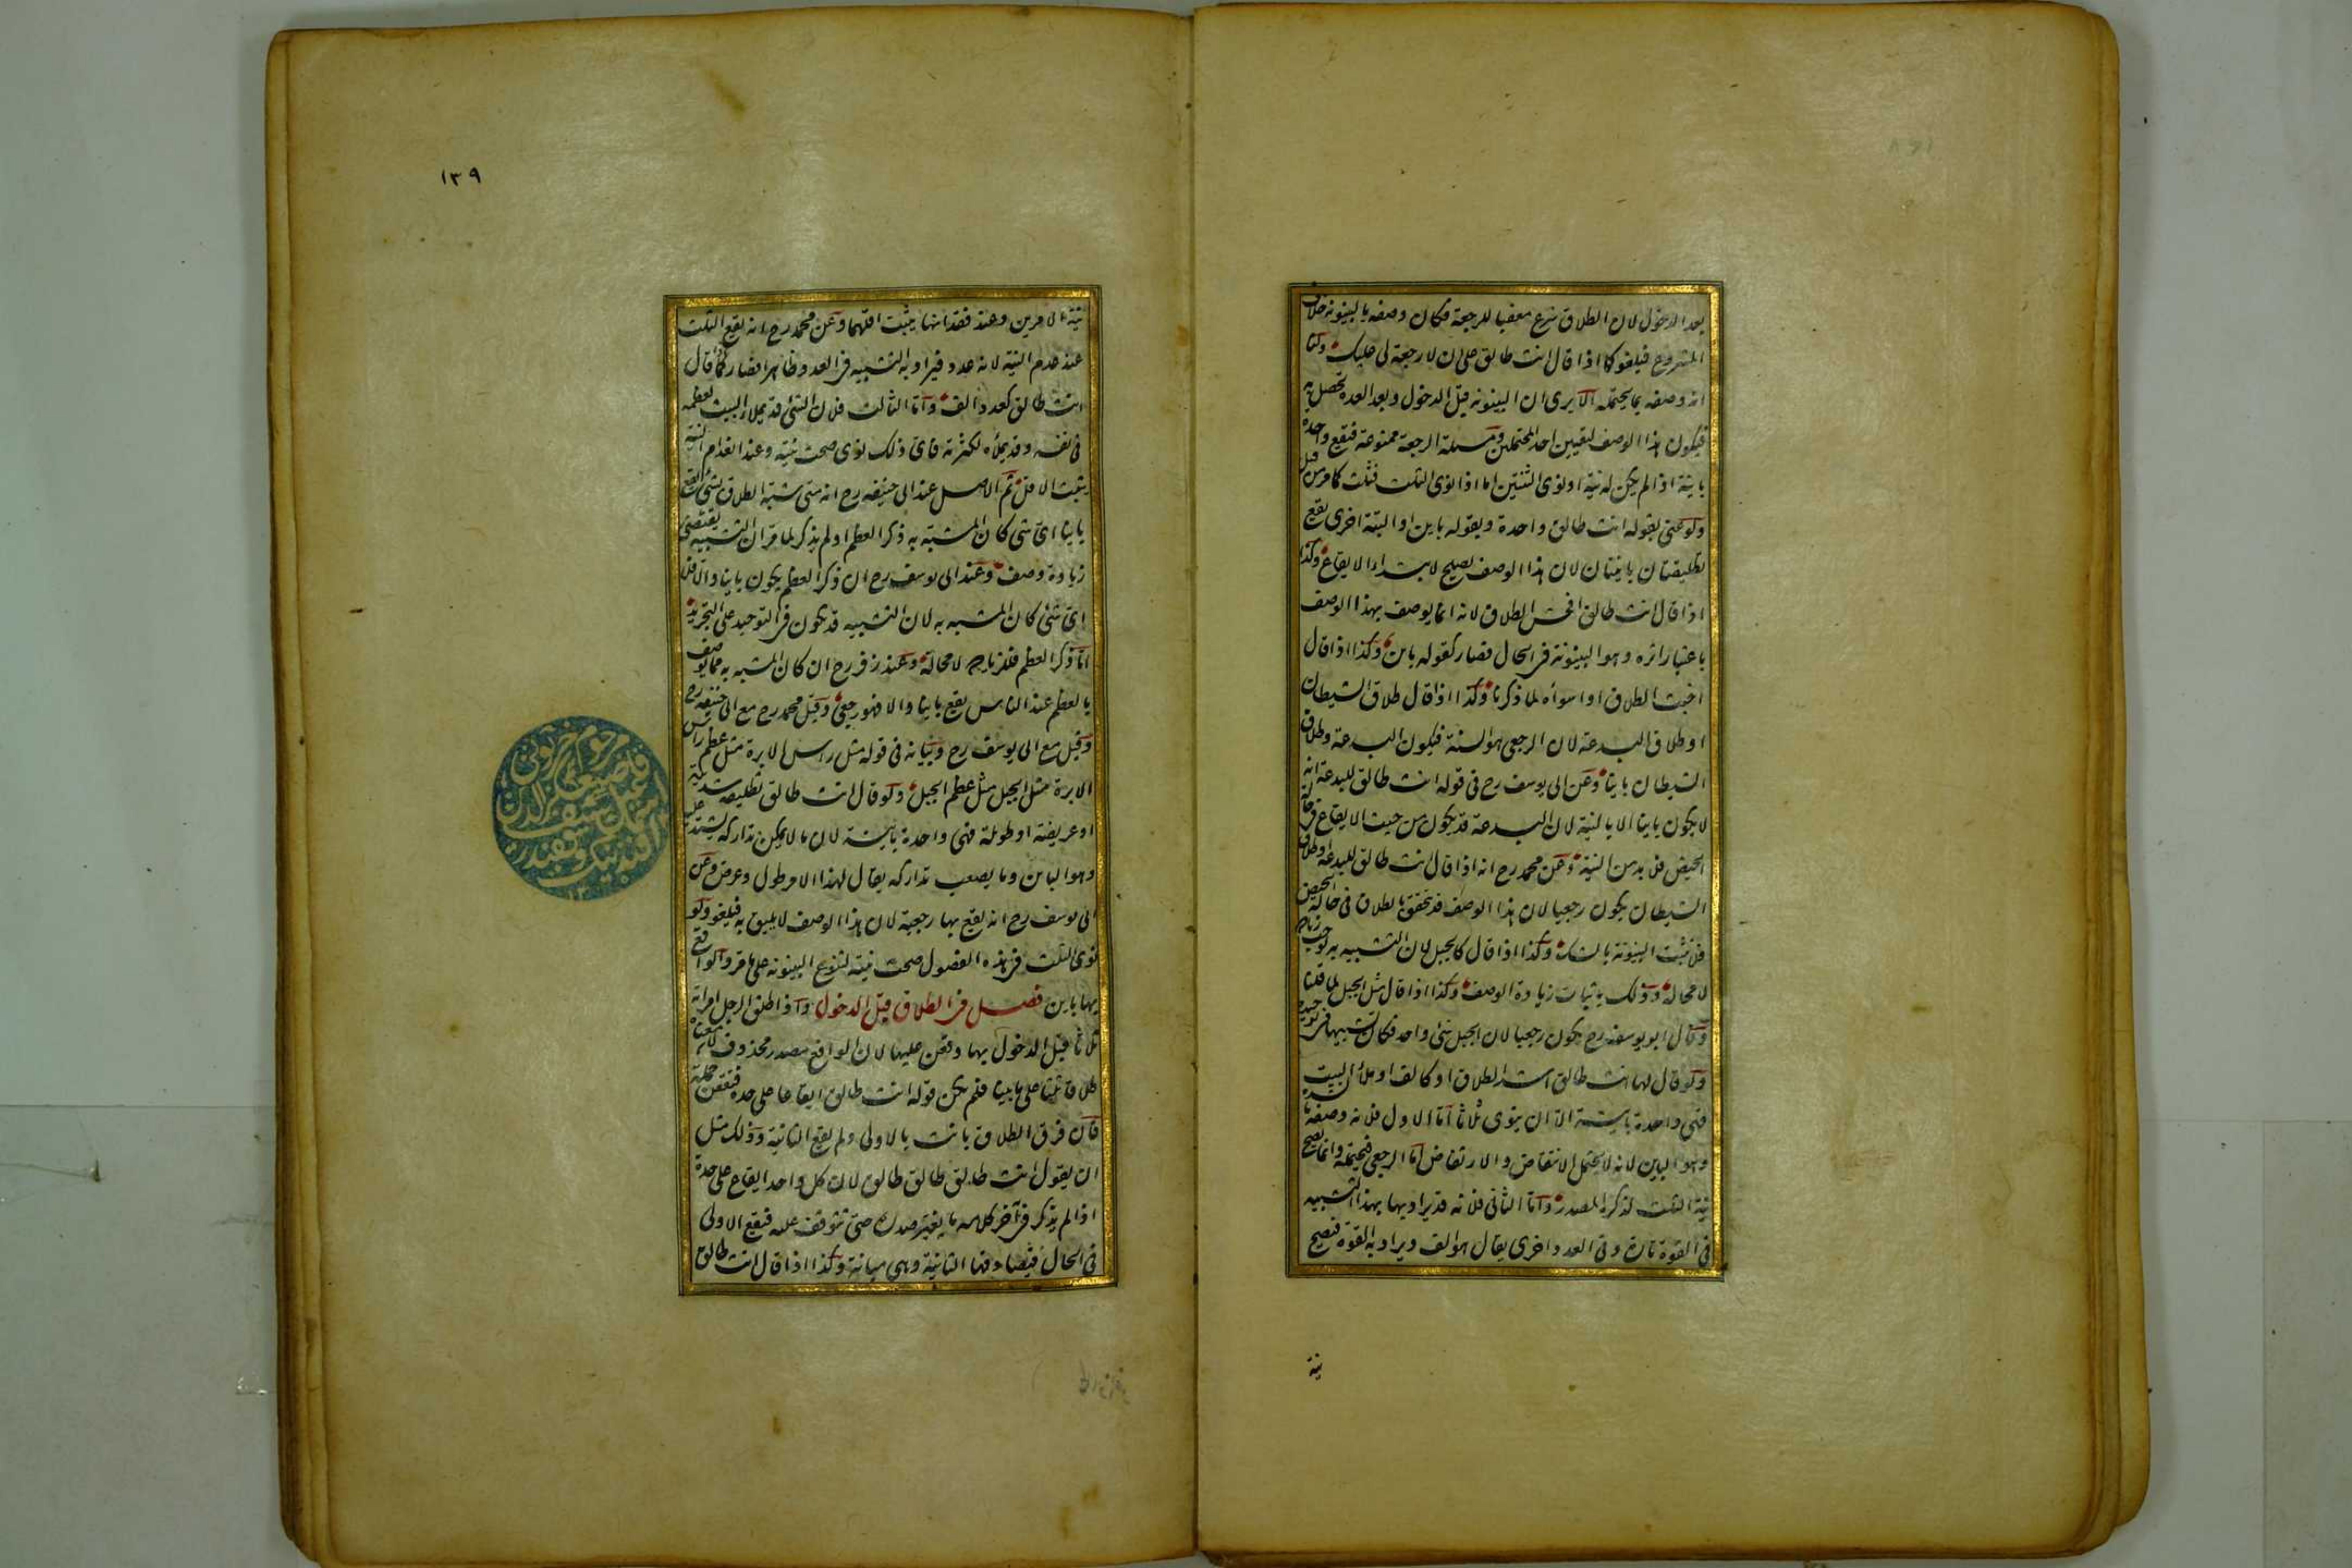 بعد الدخول لان الطلاق شرع معقبا للرجعة فكان وصفه بالبينونة خلاف
المشروع فيلغو كما اذا قال انت طالق على ان لا رجعة لى عليك ولنا
انه وصفه بما يحتمله الا يرى ان البينونة قبل الدخول وبعد العدة تحصل به
فيكون هذا الوصف لتعيين احد المحتملين ومسئلة الرجعة ممنوعة فتقع واحدة
باينة اذا لم يكن له نية او نوى الثنتين اما اذا نوى الثلث فثلث كما مر من قبل
ولو عنى بقوله انت طالق واحدة وبقوله باين او البتة اخرى يقع
تطليقتان باينتان لان هذا الوصف يصلح لابتداء الايقاع وكذا
اذا قال انت طالق افحش الطلاق لانه انما يوصف بهذا الوصف
باعتبار اثره وهو البينونة فى الحال فصار كقوله باين وكذا اذا قال
اخبث الطلاق او اسوأه لما ذكرنا وكذا اذا قال طلاق الشيطان
او طلاق البدعة لان الرجعى هو السنة فيكون البدعة وطلاق
الشيطان باينا وعن ابى يوسف رح فى قوله انت طالق للبدعة انه
لا يكون باينا الا بالنية لان البدعة قد يكون من حيث الايقاع فى حالة
الحيض فلا بد من النية وعن محمد رح انه اذا قال انت طالق للبدعة او طلاق
الشيطان يكون رجعيا لان هذا الوصف قد يتحقق بالطلاق فى حالة الحيض
فلا تثبت البينونة بالشك وكذا اذا قال كالجبل لان التشبيه به يوجب زيادة
لا محالة وذلك باثبات زيادة الوصف وكذا اذا قال مثل الجبل لما قلنا
وقال ابو يوسف رح يكون رجعيا لان الجبل شئ واحد فكان تشبيها فى توحيده
ولو قال لها انت طالق اشد الطلاق او كالف او ملأ البيت
فهى واحدة باينة الا ان ينوى ثلاثا اما الاول فلانه وصفه بالشدة
وهو الباين لانه لا يحتمل الانتقاض والارتفاض اما الرجعى فيحتمله وانما تصح
نية الثلث لذكره المصدر واما الثانى فلانه قد يراد بهذا التشبيه
فى القوة تارة وفى العدد اخرى يقال هو الف ويراد به القوة فتصح
نية
١٣٩
نية الامرين وعند فقدانها يثبت اقلهما وعن محمد رح انه يقع الثلث
عند عدم النية لانه عدد فيراد به التشبيه فى العدد ظاهرا فصار كما قال
انت طالق كعدد الف واما الثالث فلان الشئ قد يملأ البيت لعظمه
فى نفسه وقد يملأه لكثرته فاى ذلك نوى صحت نيته وعند انعدام النية
يثبت الاقل ثم الاصل عند ابى حنيفة رح انه متى شبه الطلاق بشئ يقع
باينا اى شئ كان المشبه به ذكر العظم او لم يذكر لما مر ان التشبيه يقتضى
زيادة وصف وعند ابى يوسف رح ان ذكر العظم يكون باينا والا فلا
اى شئ كان المشبه به لان التشبيه قد يكون فى التوحيد على التجريد
اما ذكر العظم فللزيادة لا محالة وعند زفر رح ان كان المشبه به مما يوصف
بالعظم عند الناس يقع باينا والا فهو رجعى وقيل محمد رح مع ابى حنيفة رح
وقيل مع ابى يوسف رح وبيانه فى قوله مثل راس الابرة مثل عظم راس
الابرة مثل الجبل مثل عظم الجبل ولو قال انت طالق تطليقة شديدة
او عريضة او طويلة فهى واحدة باينة لان ما لا يمكن تداركه يشتد عليه
وهو الباين وما يصعب تداركه يقال لهذا الامر طول وعرض وعن
ابى يوسف رح انه يقع بها رجعية لان هذا الوصف لا يليق به فيلغو ولو
نوى الثلث فى هذه الفصول صحت نيته لتنوع البينونة على ما مر والواقع
بها باين فصل فى الطلاق قبل الدخول واذا طلق الرجل امراته
ثلاثا قبل الدخول بها وقعن عليها لان الواقع مصدر محذوف لان معناه
طلاقا ثلثا على ما بينا فلم يكن قوله انت طالق ايقاعا على حدة فيقعن جملة
فان فرق الطلاق بانت بالاولى ولم يقع الثانية وذلك مثل
ان يقول انت طالق طالق طالق لان كل واحد ايقاع على حدة
اذا لم يذكر فى آخر كلامه ما يغير صدره حتى يتوقف عليه فيقع الاولى
فى الحال فيصادفها الثانية وهى مبانة وكذا اذا قال انت طالق